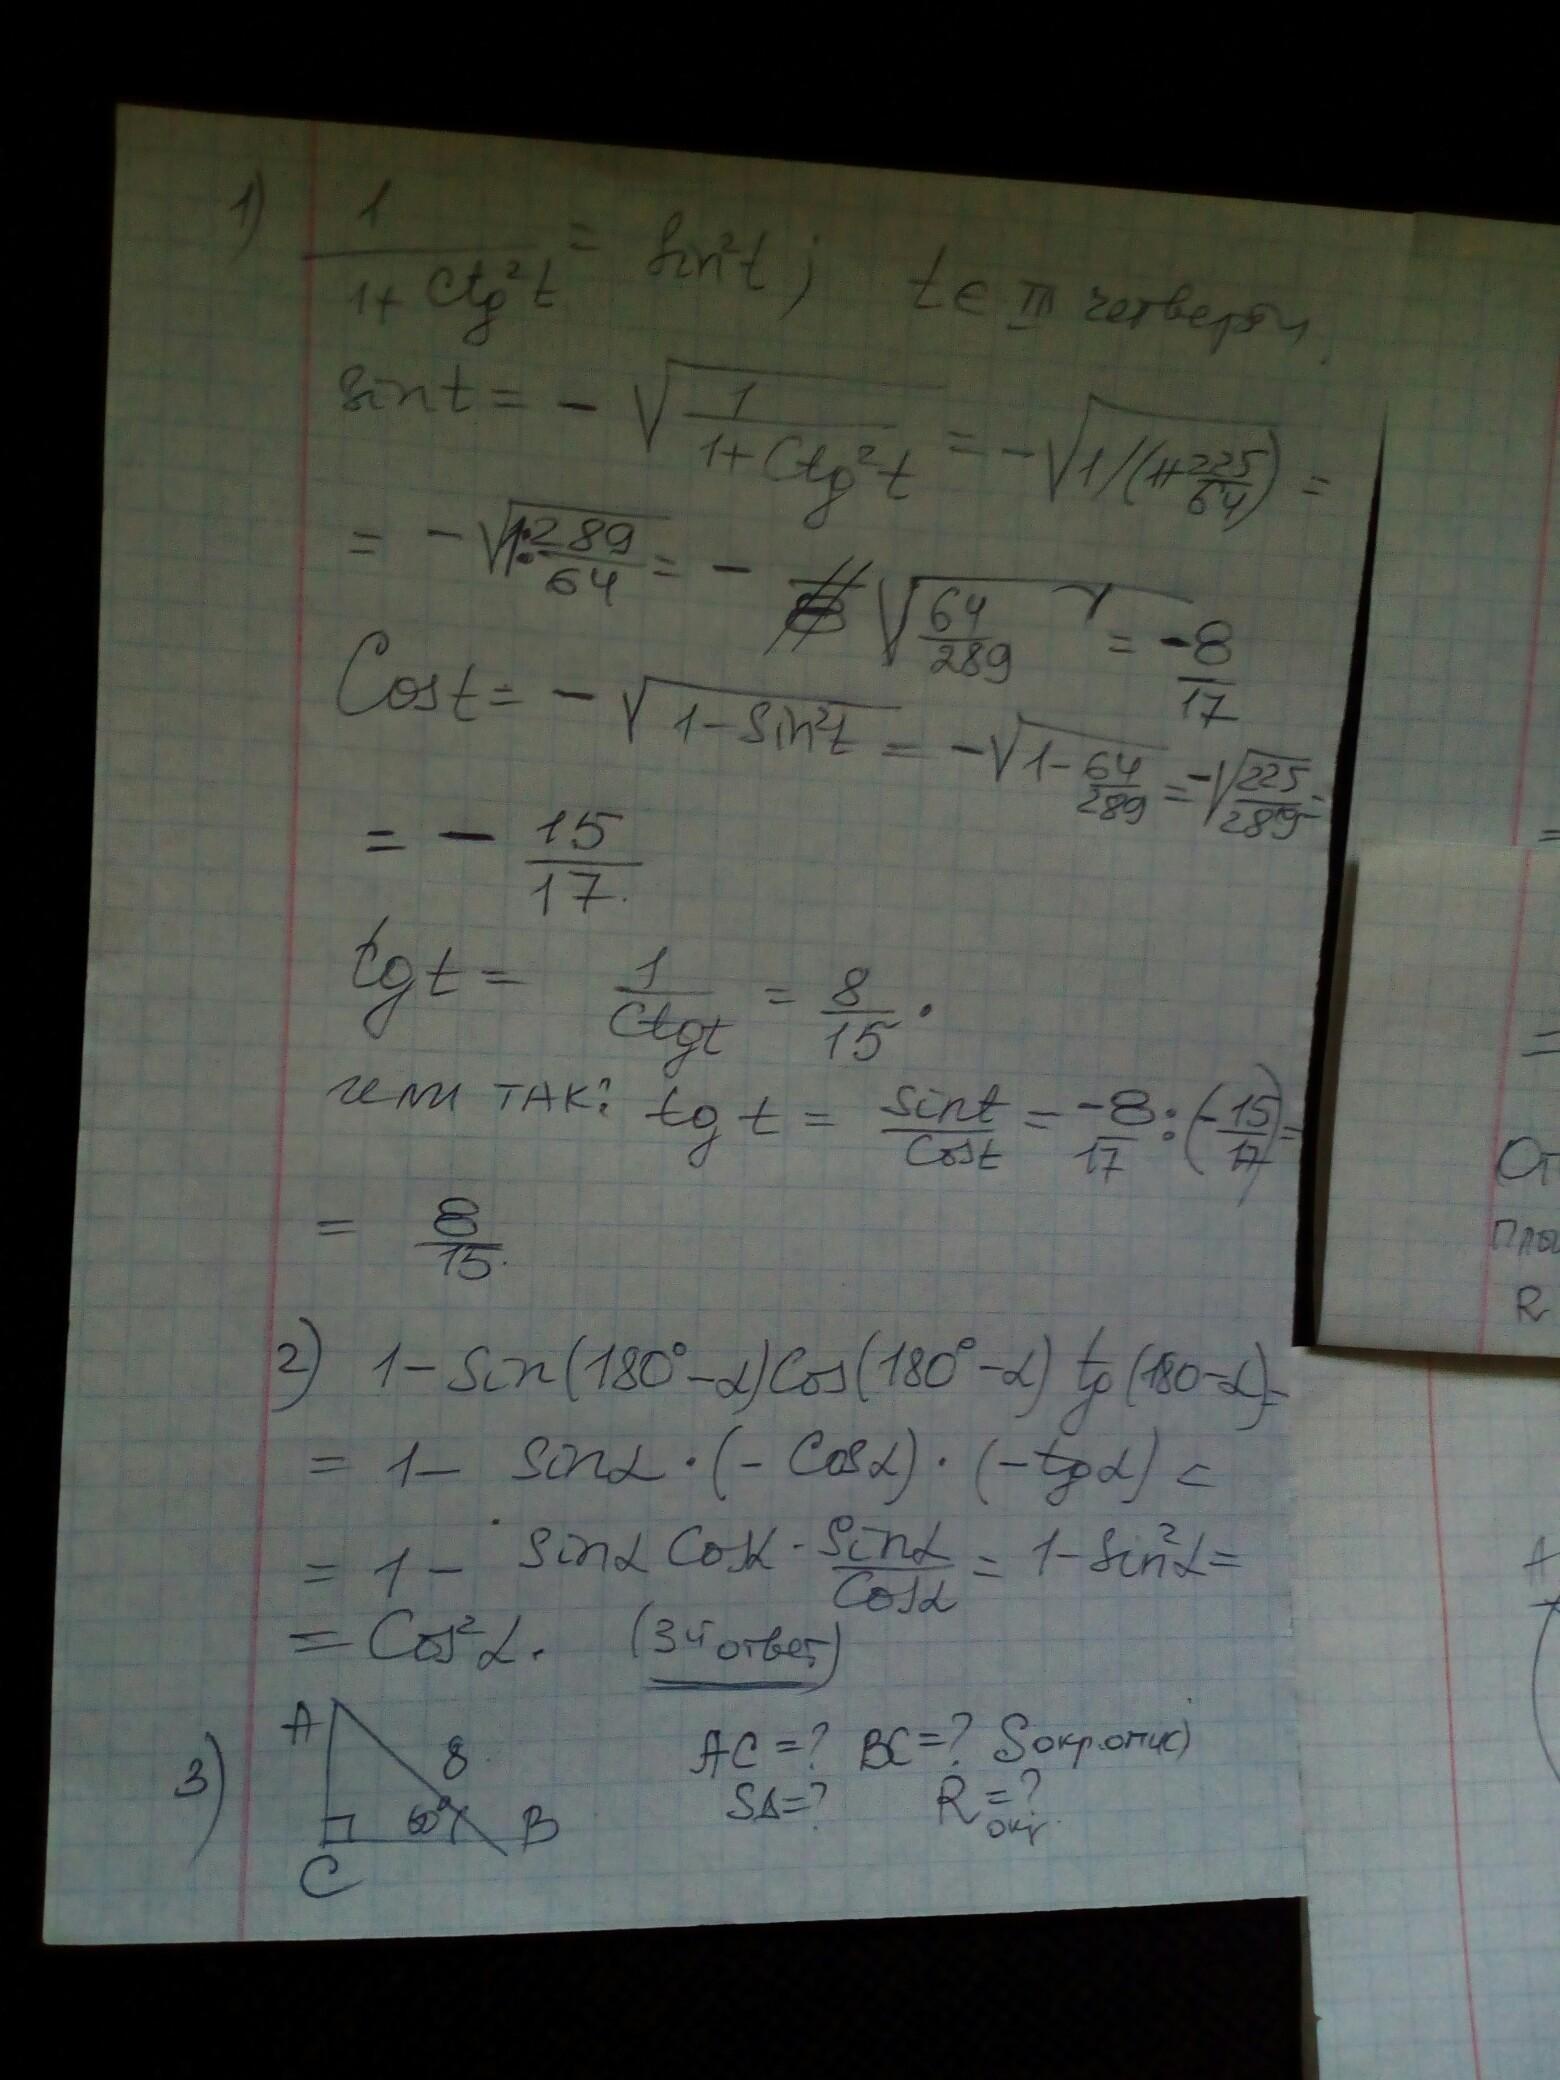 1) 1/(1+Ctg²t) = Sin²t; t ∈ III четверти.
Sint = -√(1/(1+Ctg²t)) = -√(1/(1+225/64)) =
= -√(1:289/64) = - √(64/289) = -8/17
Cost = -√(1-Sin²t) = -√(1-64/289) = -√(225/289) =
= - 15/17.
tgt = 1/Ctgt = 8/15.
или ТАК: tgt = Sint/Cost = -8/17:(-15/17) =
= 8/15.
2) 1-Sin(180°-α)Cos(180°-α) tg(180-α)=
= 1- Sinα·(-Cosα)·(-tgα) =
= 1- Sinα Cosα · Sinα/Cosα = 1-Sin²α =
= Cos²α. (3й ответ)
3) A 8 60° B C
AC=? BC=? Sокр.опис)
SΔ=? Rокр.=?
=
=
От
R
A